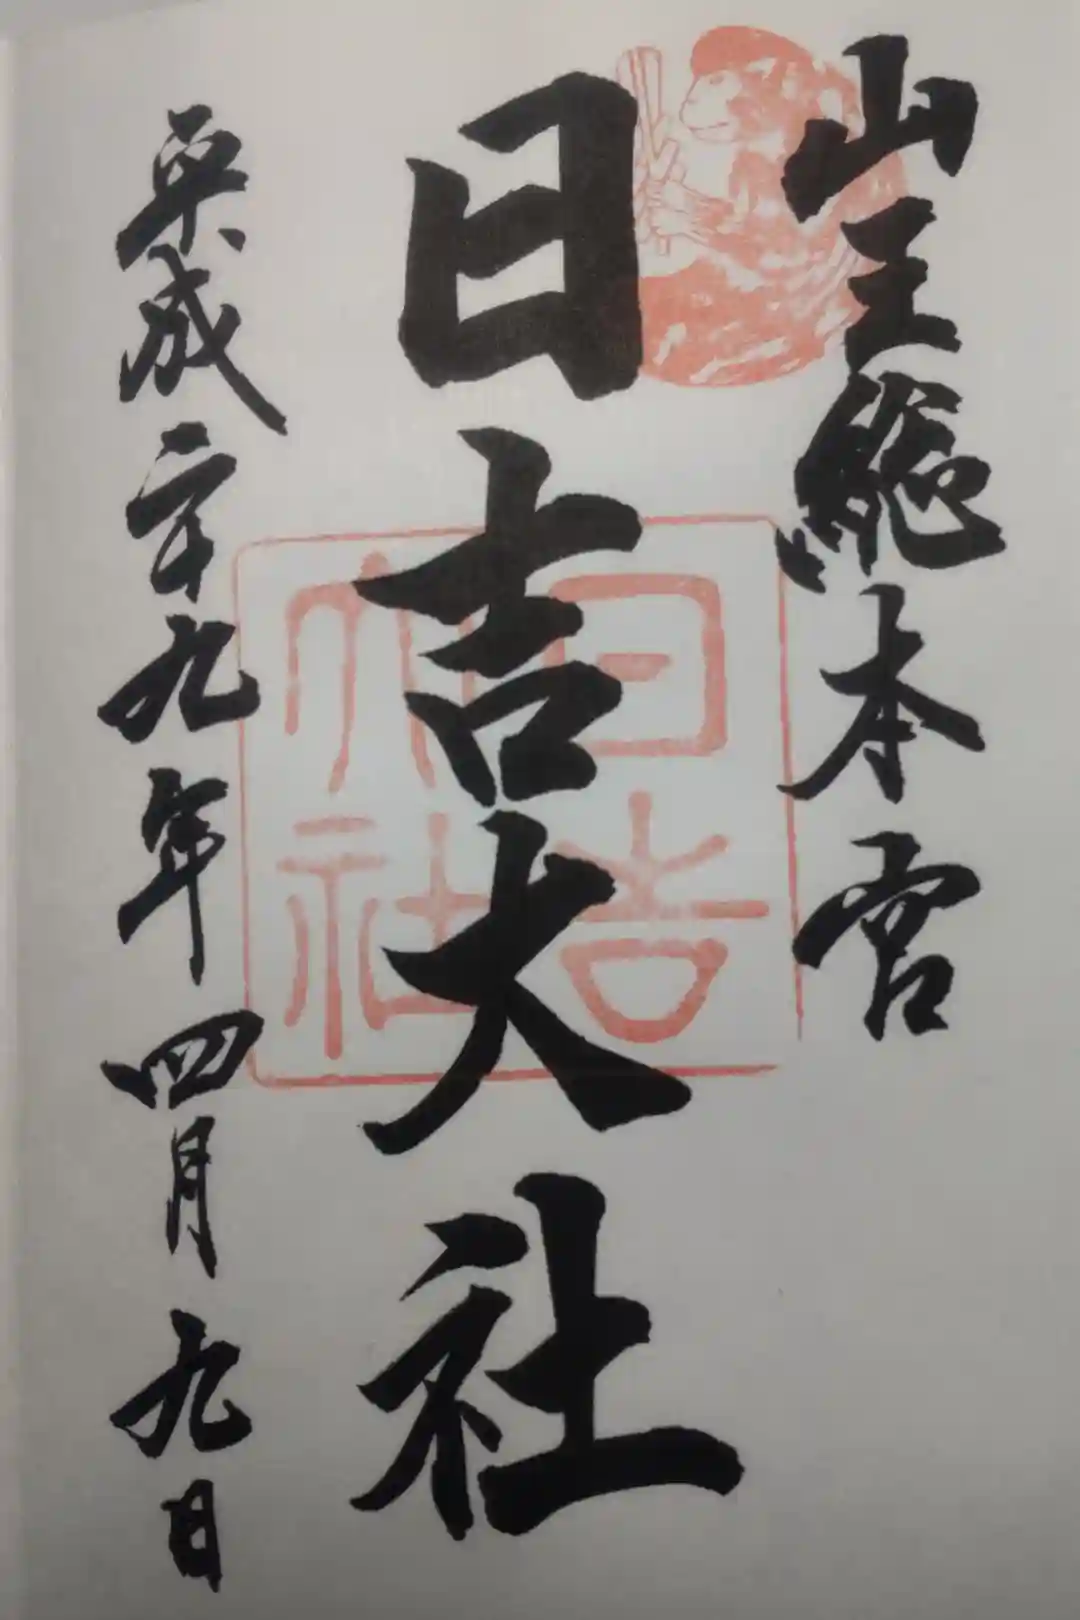 山王総本宮
日吉大社
平成二十九年四月九日
日吉大社